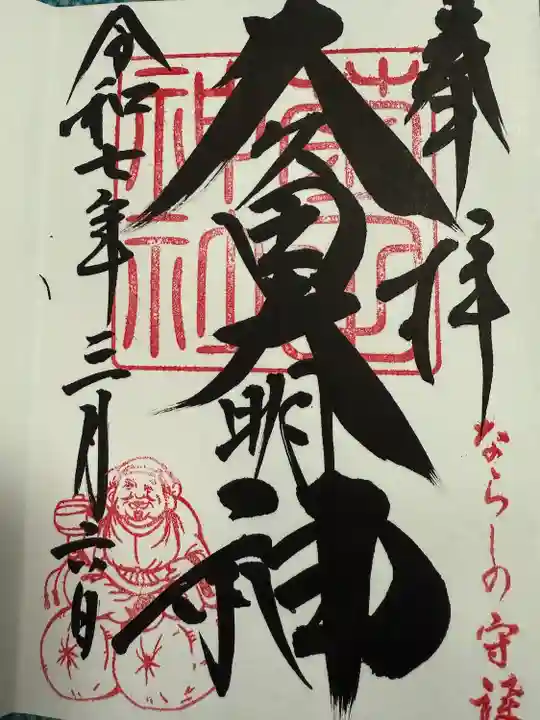 奉拝
ならしの守護
大明神
令和七年三月六日
神社